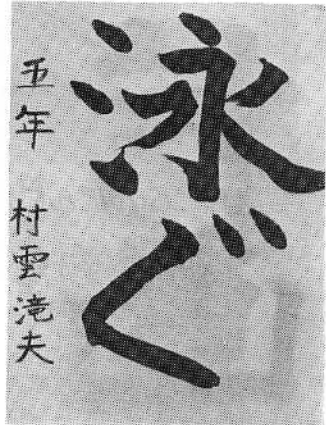 泳ぐ
五年 村雲滝夫